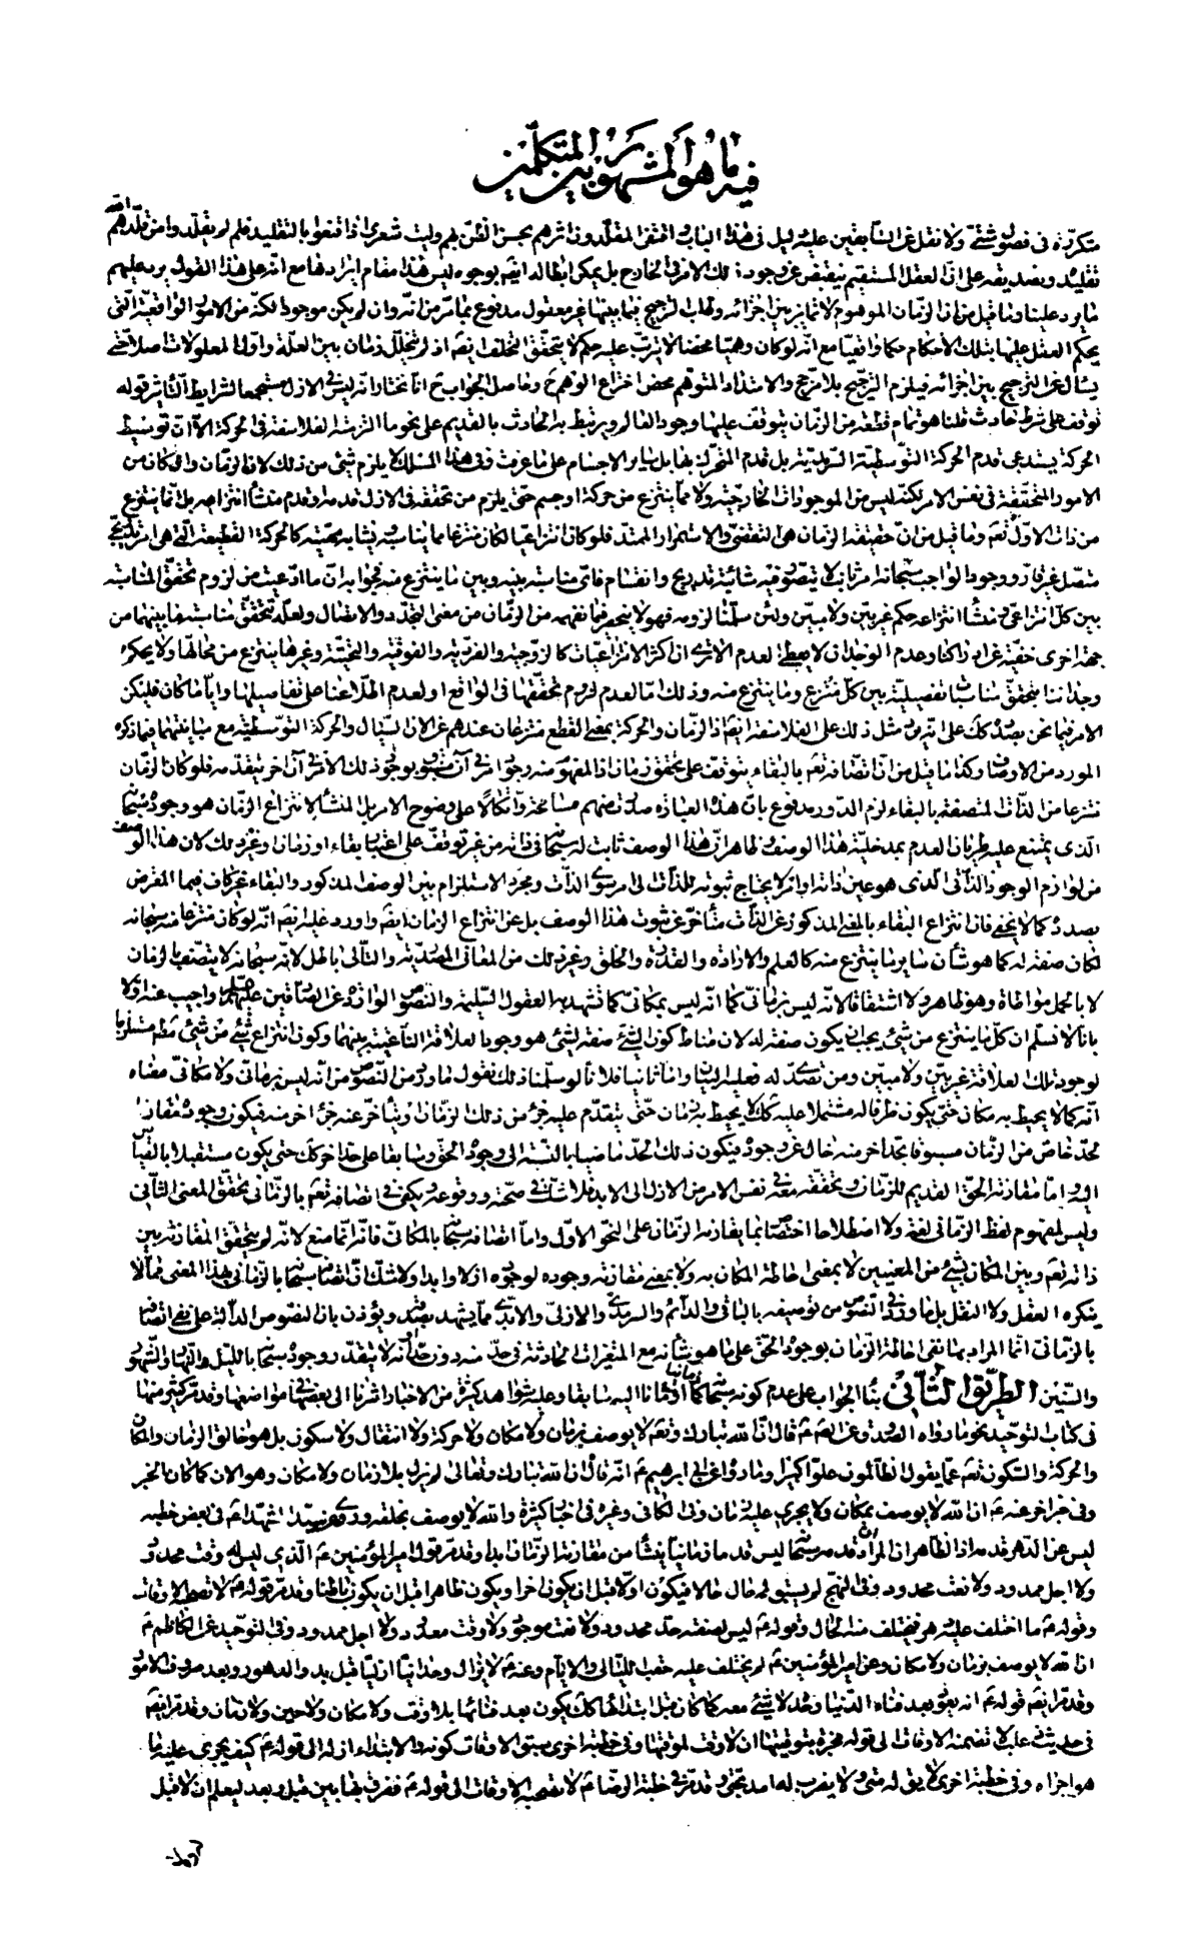 فيه ما هو المشهور بين المتكلمين
متكررة في فصول شتى ولا نقل عن السابقين عليه دليل في هذا الباب اقتفى المقلدون اثرهم بحسن الظن بهم وليت شعري اذا قنعوا بالتقليد فلم لم يقلدوا من قلدهم الله
تقليده وتصديقه على ان العقل المستقيم ينقبض عن وجود ذلك الامر في الخارج بل يمكن ابطاله ايضا بوجوه ليس هذا مقام ايرادها مع انه على هذا القول يرد عليهم
ما يرد علينا وما قيل من ان الزمان الموهوم لا تمايز بين اجزائه وطلب الترجيح فيما بينها غير معقول مدفوع بما مر من انه وان لم يكن موجودا لكنه من الامور الواقعية التي
يحكم العقل عليها بتلك الاحكام حكما واقعيا مع انه لو كان وهميا محضا لا يترتب عليه حكم لا يتحقق التخلف ايضا اذ لم يتخلل زمان بين العلة واول المعلولات اصلا حتى
يسأل عن الترجيح بين اجزائه فيلزم الترجيح بلا مرجح والامتداد المتوهم محض اختراع الوهم ح وحاصل الجواب ح انا نختار انه ليس في الازل مستجمعا لشرايط التأثير قوله
توقف على شرط حادث قلنا هو تمام قطعة من الزمان يتوقف عليها وجود العالم ويرتبط به الحادث بالقديم على نحو ما التزمه الفلاسفة في الحركة الا ان توسيط
الحركة يستدعي قدم الحركة التوسطية السرمدية بل قدم المتحرك بها بل ساير الاجسام على ما عرفت وفي هذا المسلك لا يلزم شيء من ذلك لان الزمان وان كان من
الامور المتحققة في نفس الامر لكنه ليس من الموجودات الخارجية ولا مما ينتزع من حركة او جسم حتى يلزم من تحققه في الازل قدمه وقدم منشأ انتزاعه بل انما ينتزع
من ذات الاول تعم وما قيل من ان حقيقة الزمان هي التقضي والاستمرار الممتد فلو كان انتزاعيا لكان منتزعا مما يناسبه يشابه بحيثية كالحركة القطيعة التي هي امر تدريجي
متصل غير قار ووجود الواجب سبحانه امر ثابت لا يتصور فيه شائبة تدريج وانقسام فاي مناسبة بينه وبين ما ينتزع منه فجوابه ان ما ادعيت من لزوم تحقق المناسبة
بين كل انتزاعي ومنشأ انتزاعه حكم غير بين ولا مبين ولئن سلمنا لزومه فهو لا ينحصر فيما نفهمه من الزمان من معنى التجدد والاتصال ولعله تحقق مناسبة ما بينهما من
جهة اخرى خفية عن ادراكنا وعدم الوجدان لا يعطى العدم الا ترى ان اكثر الانتزاعيات كالزوجية والفردية والفوقية والتحتية وغيرها ينتزع من محالها ولا يحكم
وجداننا بتحقق مناسبات تفصيلية بين كل منتزع وما ينتزع منه وذلك اما لعدم لزوم تحققها في الواقع او لعدم اطلاعنا على تفاصيلها وايا ما كان فليكن
الامر فيما نحن بصدده كك على انه يرد مثل ذلك على الفلاسفة ايضا اذ الزمان والحركة بمعنى القطع منتزعان عندهم عن الان السيال والحركة التوسطية مع مباينتهما فيما ذكره
المورد من الاوصاف وكذا ما قيل من ان اتصافه تعم بالبقاء يتوقف على تحقق زمان اذ المفهوم منه وجود امر في آن مسبوق بوجود ذلك الامر في آن اخر يتقدمه فلو كان الزمان
منتزعا من الذات المتصفة بالبقاء لزم الدور مدفوع بان هذه العبارة صدرت عنهم مسامحة واتكالا على وضوح الامر بل المنشأ لانتزاع الزمان هو وجوده سبحانه
الذي يمتنع عليه طريان العدم بمدخلية هذا الوصف وظاهر ان هذا الوصف ثابت له سبحانه في ذاته من غير توقف على اعتبار بقاء او زمان وغير ذلك لان هذا الوصف
من لوازم الوجود الذاتي الذي هو عين ذاته او امر لا يحتاج ثبوته للذات الى امر سوى الذات ومجرد الاستلزام بين الوصف المذكور والبقاء غير كاف فيما المعترض
بصدده كما لا يخفى فان انتزاع البقاء بالمعنى المذكور عن الذات متأخر عن ثبوت هذا الوصف بل عن انتزاع الزمان ايضا واورد عليه ايضا انه لو كان منتزعا منه سبحانه
لكان صفة له كما هو شأن ساير ما ينتزع منه كالعلم والارادة والقدرة والخلق وغير ذلك من المعاني المصدرية والتالي باطل لانه سبحانه لا يتصف بالزمان
لا بالحمل مواطاة وهو ظاهر ولا اشتقاقا لانه ليس بزماني كما انه ليس بمكاني كما تشهد به العقول السليمة والنصوص الواردة عن الصادقين عليهم السلام واجيب عنه اولا
بانا لا نسلم ان كل ما ينتزع من شيء يجب ان يكون صفة له لان مناط كون الشيء صفة لشيء هو وجود العلاقة الناعتية بينهما وكون انتزاع شيء من شيء مطلقا مستلزما
لوجود تلك العلاقة غير بين ولا مبين ومن تصدى له فعليه البيان واما ثانيا فلانا لو سلمنا ذلك نقول ما ورد من النصوص من انه ليس بزماني ولا مكاني معناه
انه كما لا يحيط به مكان حتى يكون ظرفا له مشتملا عليه كك لا يحيط به زمان حتى يتقدم عليه جزء من ذلك الزمان او يتأخر عنه جزء اخر منه فيكون وجوده مقارنا
لحد خاص من الزمان مسبوقا بحد اخر منه خال عن وجوده فيكون ذلك الحد ماضيا بالنسبة الى وجود الحق وسابقا على حد اخر كك حتى يكون مستقبلا بالقياس
اليه واما مقارنة الحق القديم للزمان وتحققه معه في نفس الامر من الازل الى الابد فلا شك في صحته ووقوعه ويكفي في اتصافه تعم بالزماني تحقق المعنى الثاني
وليس لمفهوم لفظ الزماني لغة ولا اصطلاحا اختصاص بما يقارنه الزمان على النحو الاول واما اتصافه سبحانه بالمكان فانه انما منع لانه لم يتحقق المقارنة بين
ذاته تعم وبين المكان بشيء من المعنيين لا بمعنى احاطة المكان به ولا بمعنى مقارنته وجوده لوجوده ازلا وابدا ولا شك ان اتصافه سبحانه بالزماني بهذا المعنى مما لا
ينكره العقل ولا النقل بل ما ورد في النصوص من توصيفه بالباقي والدائم والسرمدي والازلي والابدي مما يشهد بصحته ويؤذن بان النصوص الدالة على نفي اتصافه
بالزماني انما المراد بها نفي احاطة الزمان بوجود الحق على ما هو شأنه مع المتغيرات الحادثة في حد منه دون حد انه لا يتقدر وجوده سبحانه بالليل والنهار والشهور
والسنين الطريق الثاني بناء الجواب على عدم كونه سبحانه زمانيا كما اومأنا اليه سابقا وعليه شواهد كثيرة من الاخبار اشرنا الى بعضها في مواضعها وقد مر كثير منها
في كتاب التوحيد نحو ما رواه الصدوق عن الصم ع قال ان الله تبارك وتعم لا يوصف بزمان ولا مكان ولا حركة ولا انتقال ولا سكون بل هو خالق الزمان والمكان
والحركة والسكون تعم عما يقول الظالمون علوا كبيرا وما رواه عن ابي ابراهيم ع انه قال ان الله تبارك وتعالى لم يزل بلا زمان ولا مكان وهو الان كما كان الخبر
وفي خبر اخر عنه ع ان الله لا يوصف بمكان ولا يجري عليه زمان وفي الكافي وغيره في اخبار كثيرة والله لا يوصف بخلقه وروي عن سيد الشهداء ع في بعض خطبه
ليس عن الدهر قدمه اذ الظاهر ان المراد ان قدمه سبحانه ليس قدما زمانيا ينشأ من مقارنة الزمان ابدا وقد مر قول امير المؤمنين ع الذي ليس له وقت محدود
ولا اجل ممدود ولا نعت محدود وفي النهج لم يسبق له حال حالا فيكون اولا قبل ان يكون اخرا ويكون ظاهرا قبل ان يكون باطنا وقد مر قوله ع لا تصحبه الاوقات
وقوله ع ما اختلف عليه دهر فيختلف منه الحال وقوله ع ليس لصفته حد محدود ولا نعت موجود ولا وقت معدود ولا اجل ممدود وفي التوحيد عن الكاظم ع
ان الله لا يوصف بزمان ولا مكان وعن امير المؤمنين ع لم يختلف عليه حقب الليالي والايام وعنه ع لا يزال وحدانيا ازليا قبل بدو الدهور وبعد صروف الامور
وقد مر ايضا قوله ع انه يعود بعد فناء الدنيا وحده لا شيء معه كما كان قبل ابتدائها كك يكون بعد فنائها بلا وقت ولا مكان ولا حين ولا زمان وقد مر ايضا
في حديث ذعلب لا تضمنه الاوقات الى قوله مخبرة بتوقيتها ان لا وقت لموقتها وفي خطبة اخرى سبق الاوقات كونه والابتداء ازله الى قوله ع كيف يجري عليه ما
هو اجراه وفي خطبة اخرى لا يق له متى ولا يضرب له امد بحتى وقد مر في خطبة الرضا ع لا تصحبه الاوقات الى قوله ع ففرق بها بين قبل وبعد ليعلم ان لا قبل